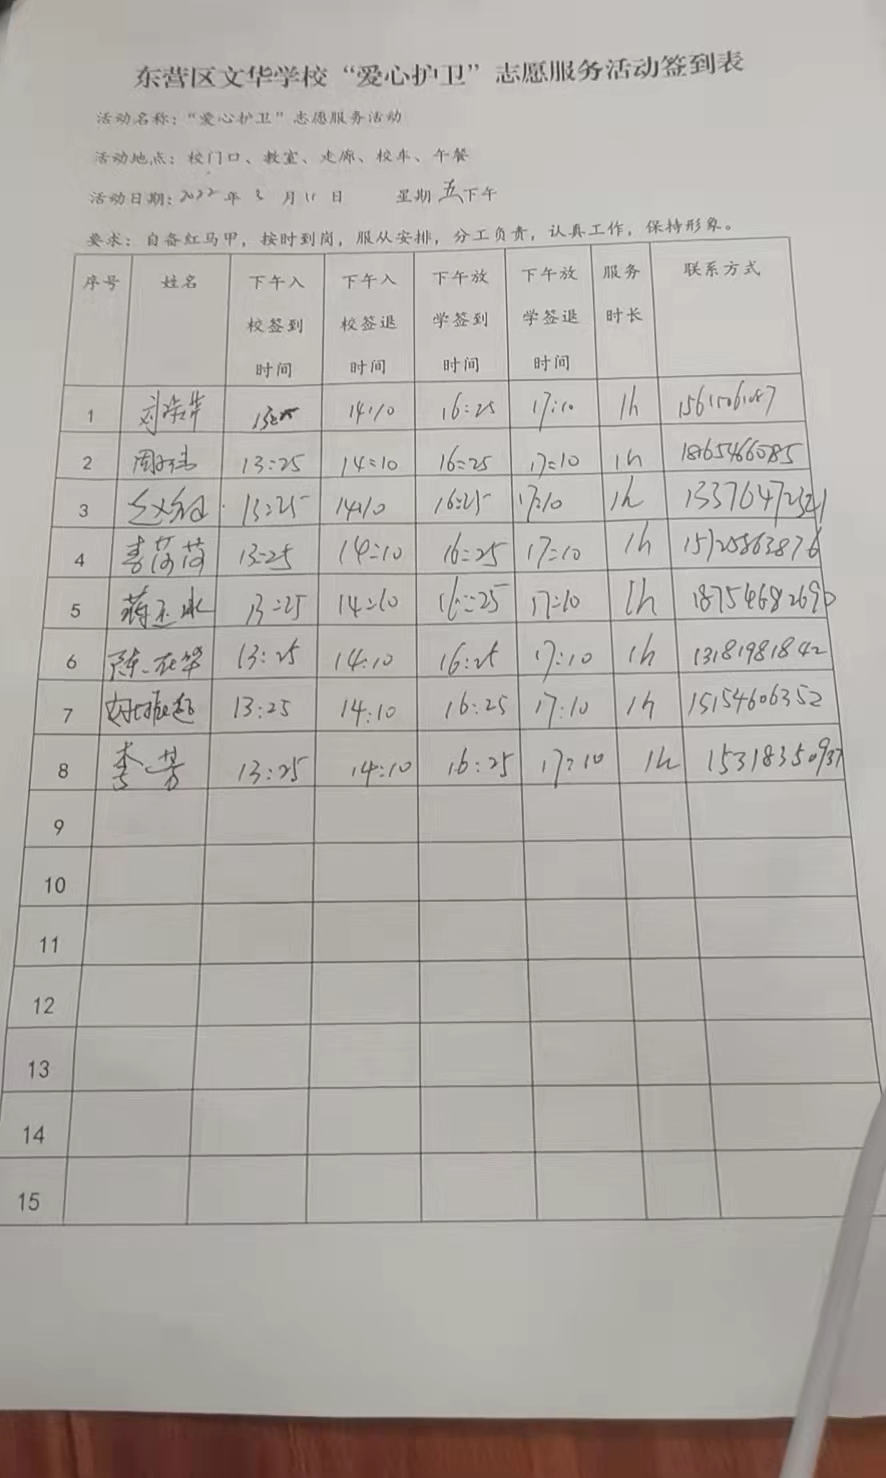 东营区文华学校“爱心护卫”志愿服务活动签到表
活动名称：“爱心护卫”志愿服务活动
活动地点：校门口、教室、走廊、校车、午餐
活动日期：2022年3月11日 星期五下午
要求：自备红马甲，按时到岗，服从安排，分工负责，认真工作，保持形象。
序号 姓名 下午入校签到时间 下午入校签退时间 下午放学签到时间 下午放学签退时间 服务时长 联系方式
1 13:25 14:10 16:25 17:10 1h
2 13:25 14:10 16:25 17:10 1h 18765466085
3 13:25 14:10 16:25 17:10 1h
4 李荷荷 13:25 14:10 16:25 17:10 1h 15725863876
5 蒋玉冰 13:25 14:10 16:25 17:10 1h 18754682690
6 13:25 14:10 16:25 17:10 1h 13181981842
7 13:25 14:10 16:25 17:10 1h 15154606352
8 李芳 13:25 14:10 16:25 17:10 1h 15318350937
9
10
11
12
13
14
15